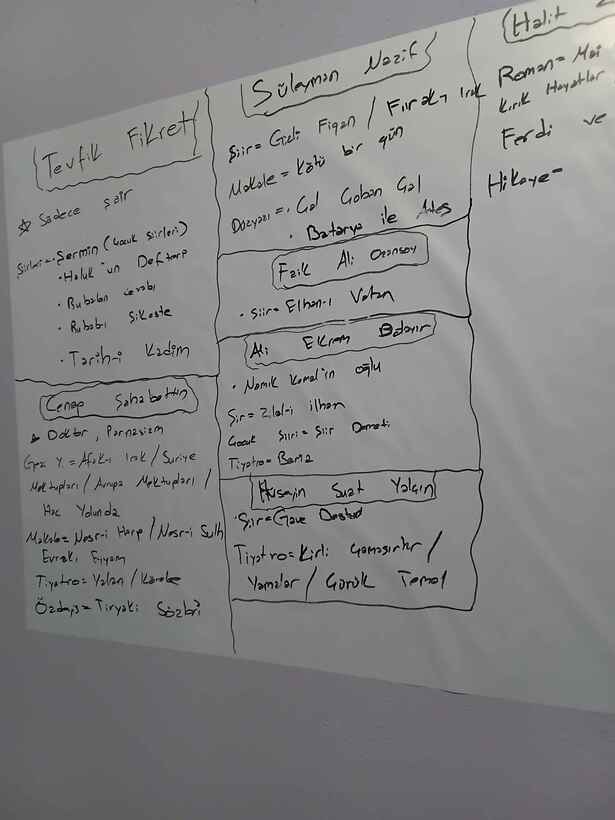 Tevfik Fikret
☆ Sadece şair
Şiirleri = Şermin (Çocuk şiirleri)
• Haluk'un Defteri
• Rubabın cevabı
• Rubab-ı Şikeste
• Tarih-i Kadim
Cenap Şahabettin
Doktor, Parnasizm
Gezi Y. = Afak-ı Irak / Suriye
Mektupları / Avrupa Mektupları /
Hac Yolunda
Makale = Nesr-i Harp / Nesr-i Sulh
Evrak-ı Eyyam
Tiyatro = Yalan / Körebe
Özdeyiş = Tiryaki Sözleri
Süleyman Nazif
Şiir = Gizli Figan / Firak-ı Irak
Makale = Kötü bir gün
Düzyazı = • Gal Çoban Gal
• Batarya ile Ateş
Faik Ali Ozansoy
• Şiir = Elhan-ı Vatan
Ali Ekrem Bolayır
• Namık Kemal'in oğlu
Şiir = Zilal-i ilham
Çocuk Şiiri = Şiir Demeti
Tiyatro = Baria
Hüseyin Suat Yalçın
• Şiir = Gave Destanı
Tiyatro = Kirli Çamaşırlar /
Yamalar / Çürük Temel
Halit
Roman = Mai
Kırık Hayatlar
Ferdi ve
Hikaye =